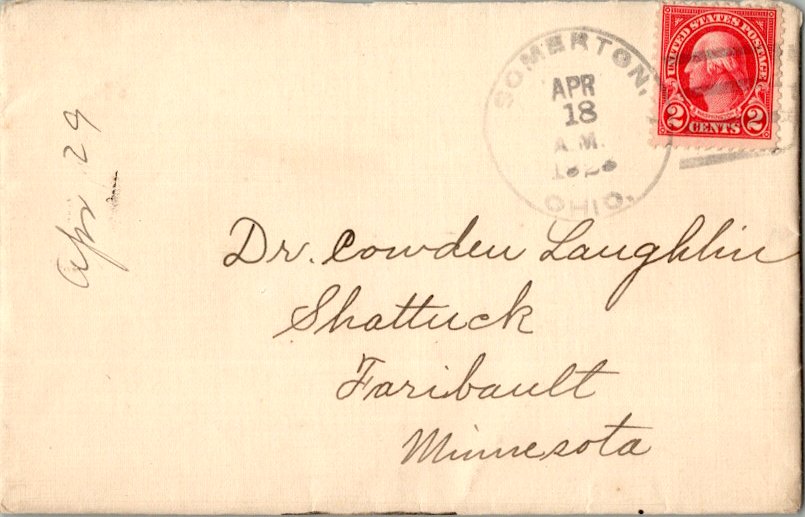 UNITED STATES POSTAGE
2 CENTS 2
SOMERTON,
APR
18
A.M.
OHIO.
Apr 29
Dr. Cowden Laughlin
Shattuck
Faribault
Minnesota